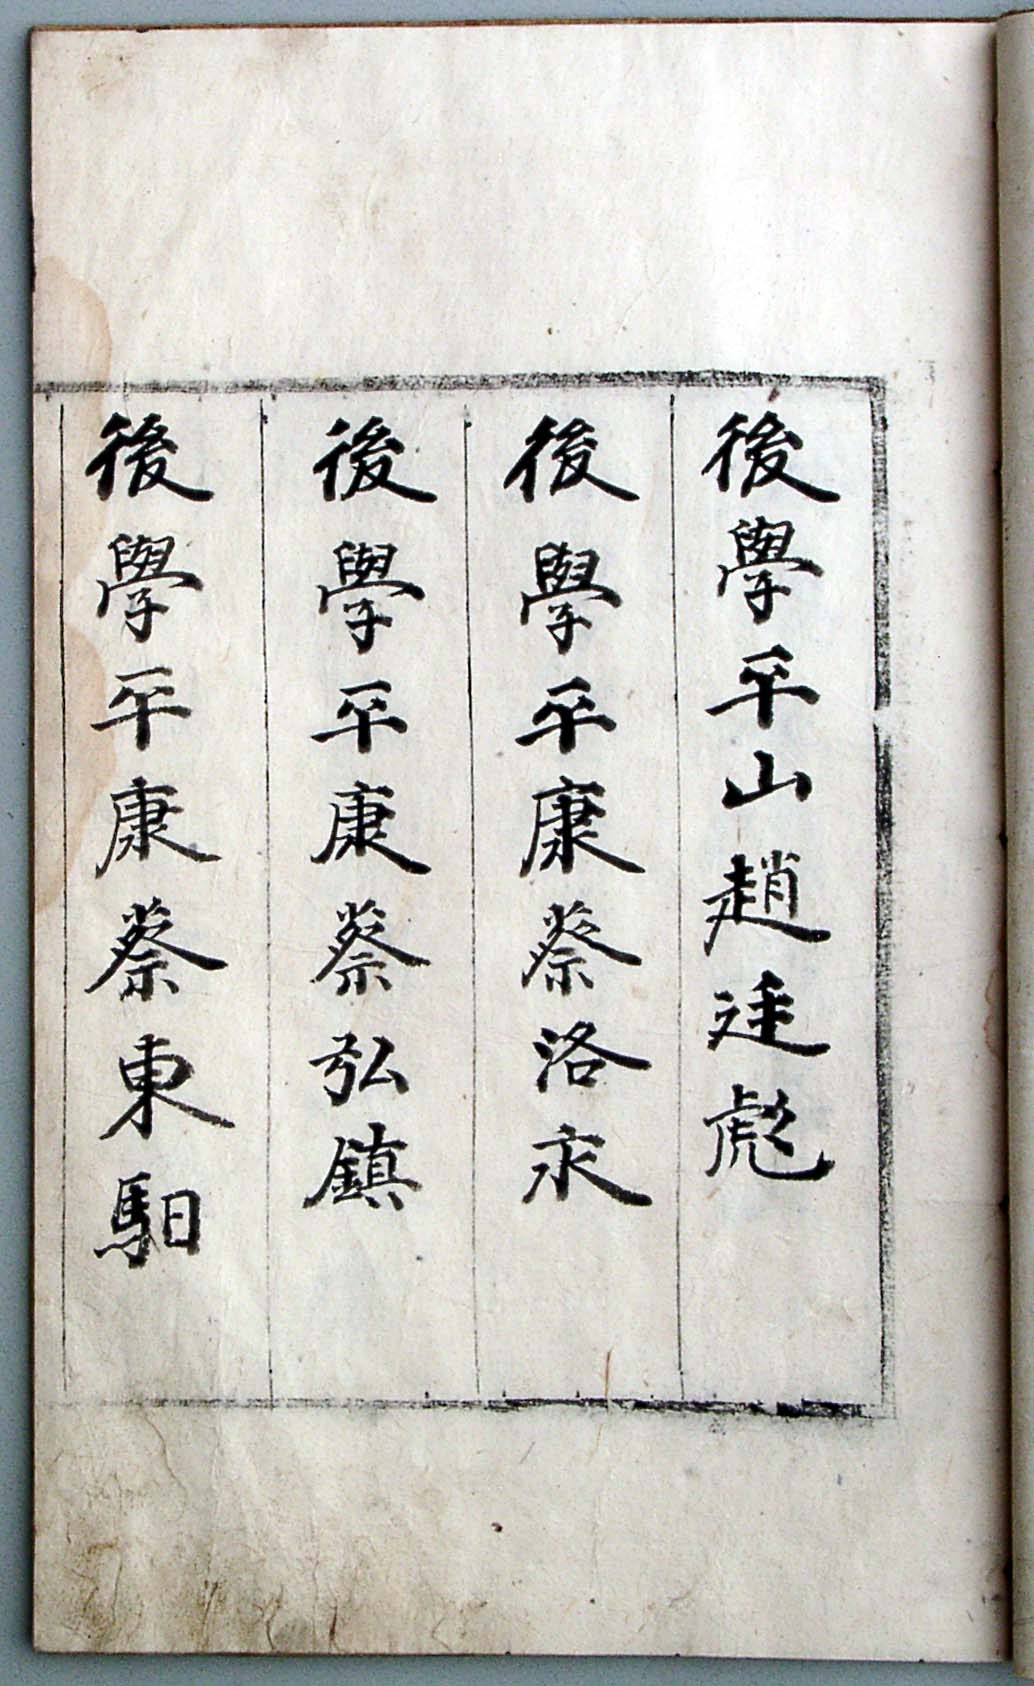 後學平山趙廷彪
後學平康蔡洛永
後學平康蔡弘鎮
後學平康蔡東馹